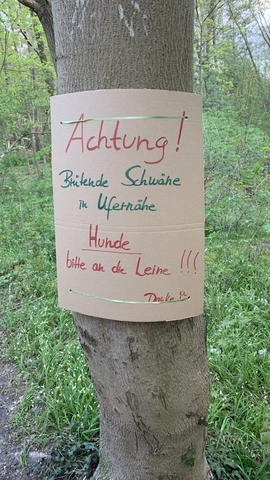 Achtung!
Brütende Schwäne
in Ufernähe
Hunde
bitte an die Leine !!!
Danke